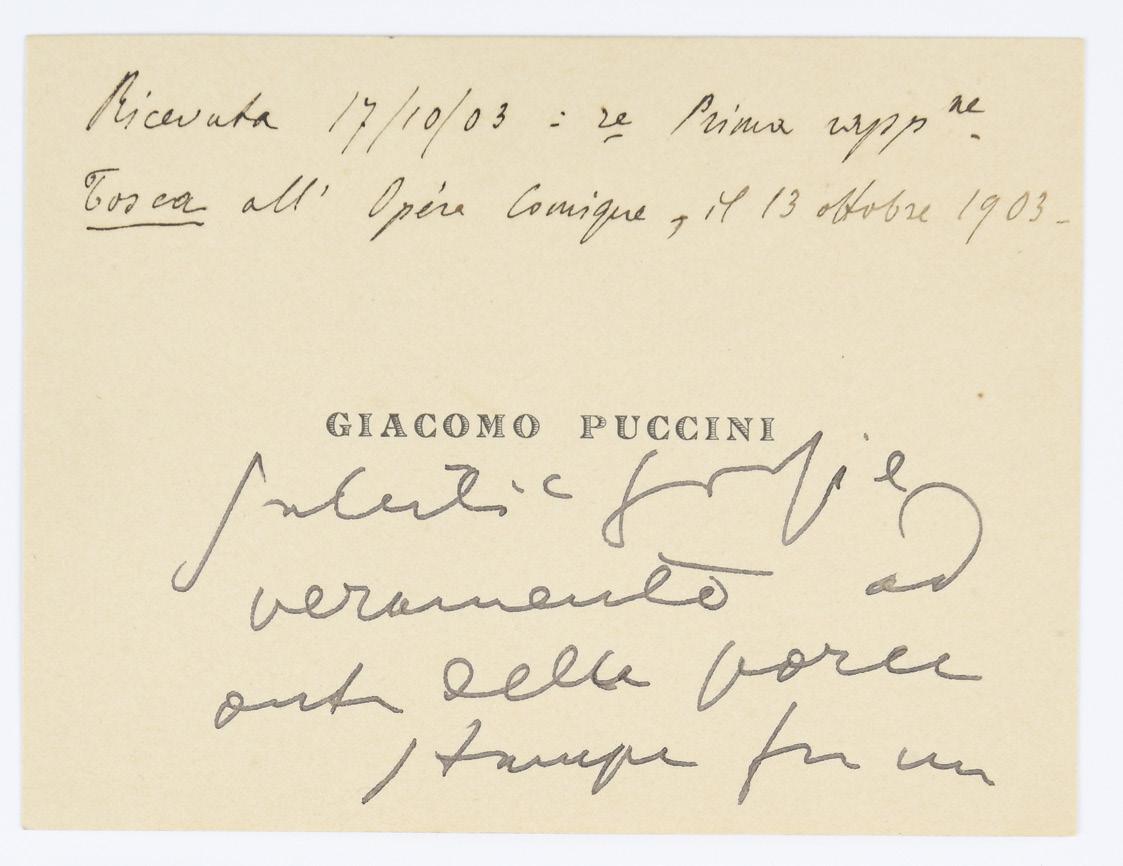 Ricevuta 17/10/03 : re Prima rapp ne
Tosca all' Opéra Comique, il 13 ottobre 1903 -
GIACOMO PUCCINI
grazie
veramente ad
onta della porca
stampa fu un